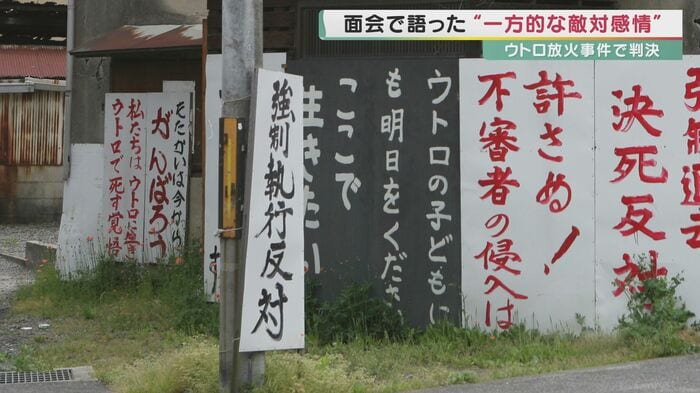 面会で語った “一方的な敵対感情”
ウトロ放火事件で判決
強制退去
決死反対
許さぬ!
不審者の侵入は
ウトロの子どもに
も明日をくださ
ここで
生きたい
強制執行反対
たたかいは今から
がんばろう
私たちは、ウトロに
ウトロで死す覚悟